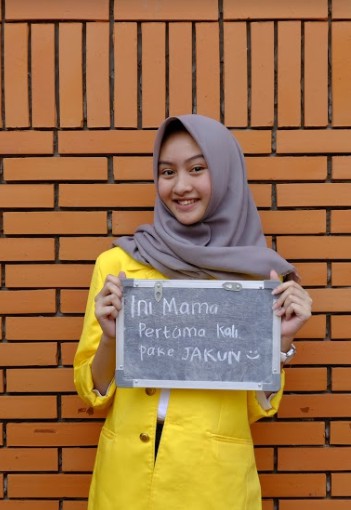 Ini Mama
Pertama Kali
pake JAKUN